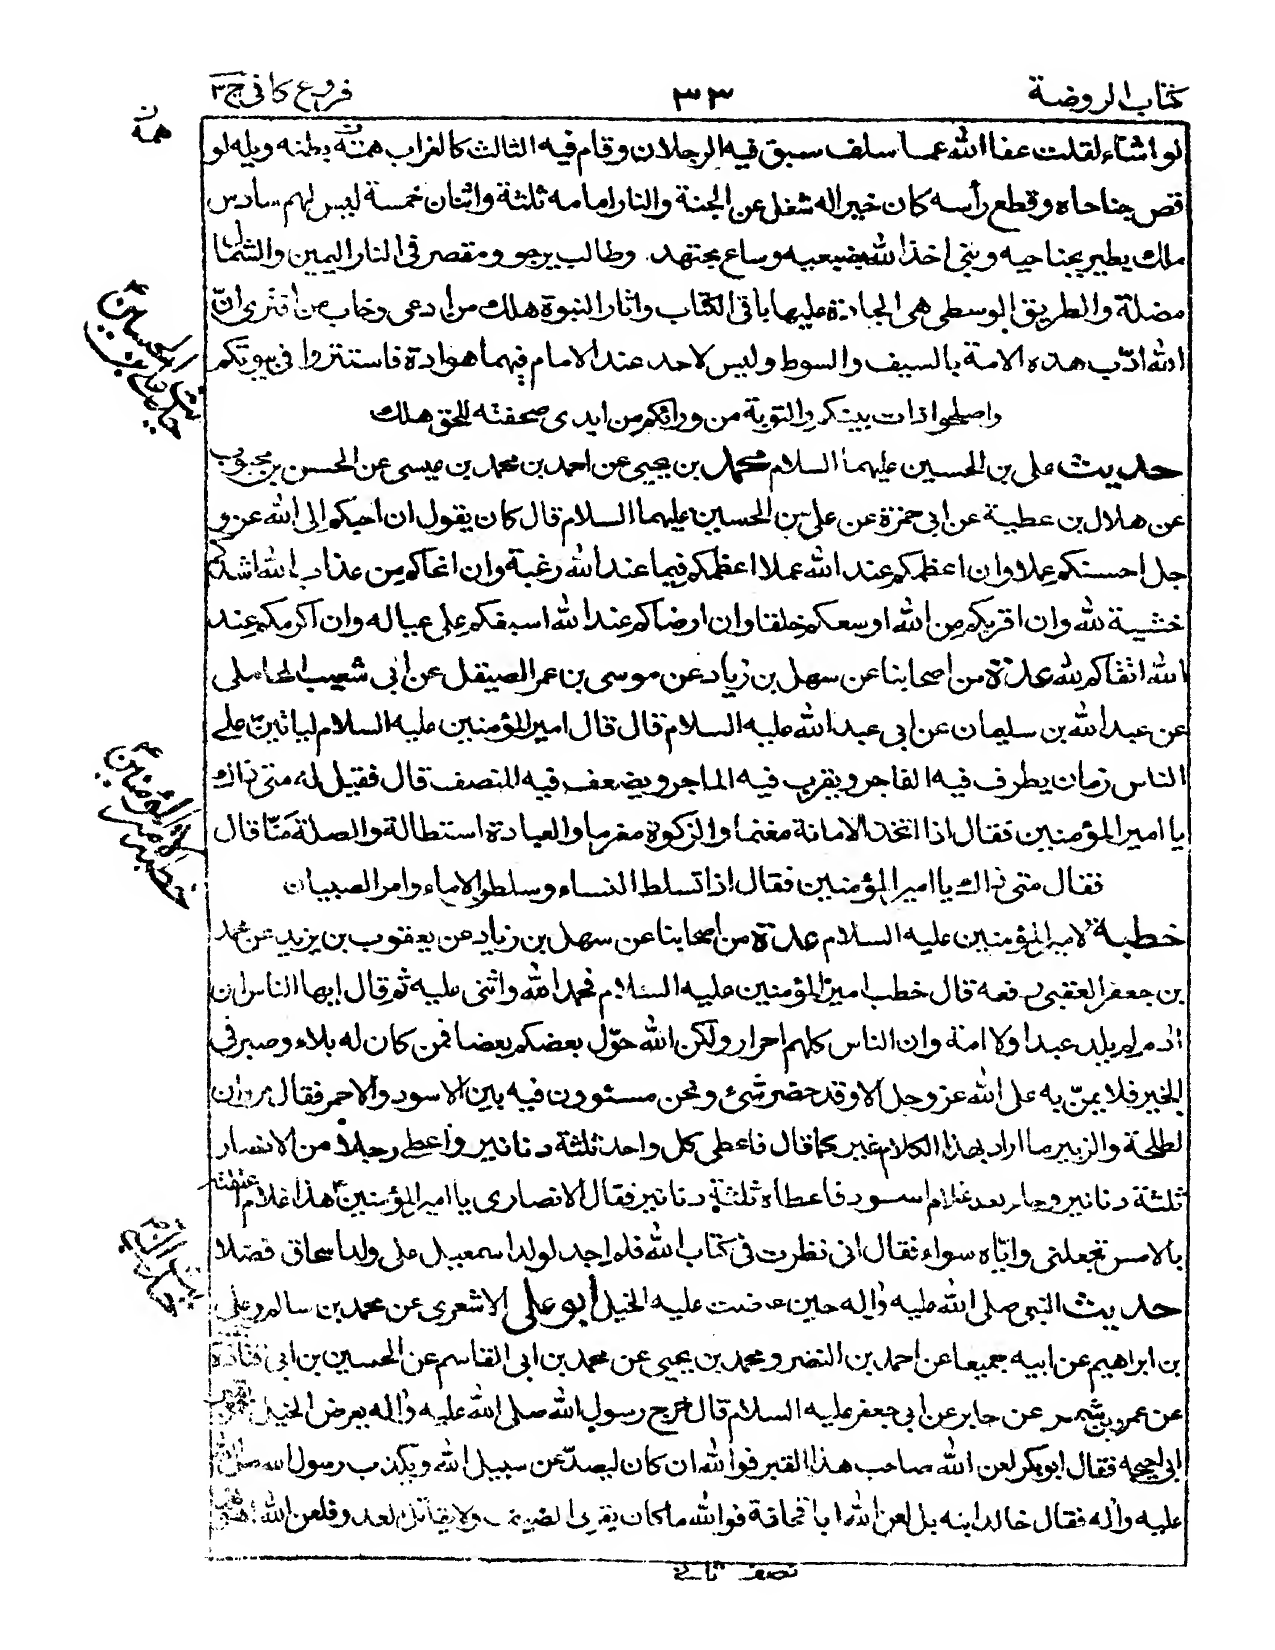 كتاب الروضة
٣٣
فروع كافي ج٣
همه ن
لو اشاء لقلت عفا الله عما سلف سبق فيه الرجلان وقام فيه الثالث كالغراب همته بطنه ويله لو
قص جناحاه وقطع رأسه كان خيرا له شغل عن الجنة والنار امامه ثلثة واثنان خمسة ليس لهم سادس
ملك يطير بجناحيه ونبي اخذ الله بضبعيه وساع مجتهد وطالب يرجو ومقصر في النار اليمين والشمال
مضلة والطريق الوسطى هي الجادة عليها باقي الكتاب واثار النبوة هلك من ادعى وخاب من افترى انّ
الله ادّب هذه الامة بالسيف والسوط وليس لاحد عند الامام فيهما هوادة فاستتروا في بيوتكم
واصلحوا ذات بينكم والتوبة من ورائكم من ابدى صحفته للحق هلك
حديث علي بن الحسين عليهما السلام
حديث علي بن الحسين عليهما السلام محمد بن يحيى عن احمد بن محمد بن عيسى عن الحسن بن محبوب
عن هلال بن عطية عن ابي حمزة عن علي بن الحسين عليهما السلام قال كان يقول ان احبكم الى الله عز و
جل احسنكم عملا وان اعظمكم عند الله عملا اعظمكم فيما عند الله رغبة وان انجاكم من عذاب الله اشدكم
خشية لله وان اقربكم من الله اوسعكم خلقا وان ارضاكم عند الله اسبغكم على عياله وان اكرمكم عند
الله اتقاكم لله عدة من اصحابنا عن سهل بن زياد عن موسى بن عمر الصيقل عن ابي شعيب المحاملي
عن عبد الله بن سليمان عن ابي عبد الله عليه السلام قال قال امير المؤمنين عليه السلام لياتينّ على
الناس زمان يطرف فيه الفاجر ويقرب فيه الماجر ويضعف فيه المنصف قال فقيل له متى ذاك
يا امير المؤمنين فقال اذا اتخذ الامانة مغنما والزكوة مغرما والعبادة استطالة والصلة منّا قال
فقال متى ذاك يا امير المؤمنين فقال اذا تسلط النساء وسلطن الاماء وامر الصبيان
خطبة لامير المؤمنين
خطبة لامير المؤمنين عليه السلام عدة من اصحابنا عن سهل بن زياد عن يعقوب بن يزيد عن محمد
بن جعفر العقبي رفعه قال خطب امير المؤمنين عليه السلام فحمد الله واثنى عليه ثم قال ايها الناس ان
ادم لم يلد عبدا ولا امة وان الناس كلهم احرار ولكن الله خوّل بعضكم بعضا فمن كان له بلاء وصبر في
الخير فلا يمنّ به على الله عز وجل الا وقد حضر شئ ونحن مسئوون فيه بين الاسود والاحمر فقال مروان
لطلحة والزبير ما اراد بهذا الكلام غيركما قال فاعطى كل واحد ثلثة دنانير واعطى رجلا من الانصار
ثلثة دنانير وجاء بعد غلام اسود فاعطاه ثلثة دنانير فقال الانصاري يا امير المؤمنين هذا غلام اعتقته
بالامس تجعلني واياه سواء فقال اني نظرت في كتاب الله فلم اجد لولد اسمعيل على ولد اسحاق فضلا
حديث النبي
حديث النبي صلى الله عليه واله حين عرضت عليه الخيل ابو علي الاشعري عن محمد بن سالم وعلي
بن ابراهيم عن ابيه جميعا عن احمد بن النضر ومحمد بن يحيى عن محمد بن ابي القاسم عن الحسين بن ابي قتادة
عن عمرو بن شمر عن جابر عن ابي جعفر عليه السلام قال خرج رسول الله صلى الله عليه واله يعرض الخيل فمر بقبر
ابي احيحة فقال ابو بكر لعن الله صاحب هذا القبر فوالله ان كان ليصدّ عن سبيل الله ويكذب رسول الله صلى الله
عليه واله فقال خالد ابنه بل لعن الله ابا قحافة فوالله ما كان يقري الضيف ولا يقاتل العدو فلعن الله اهونهما
نصف ثاني